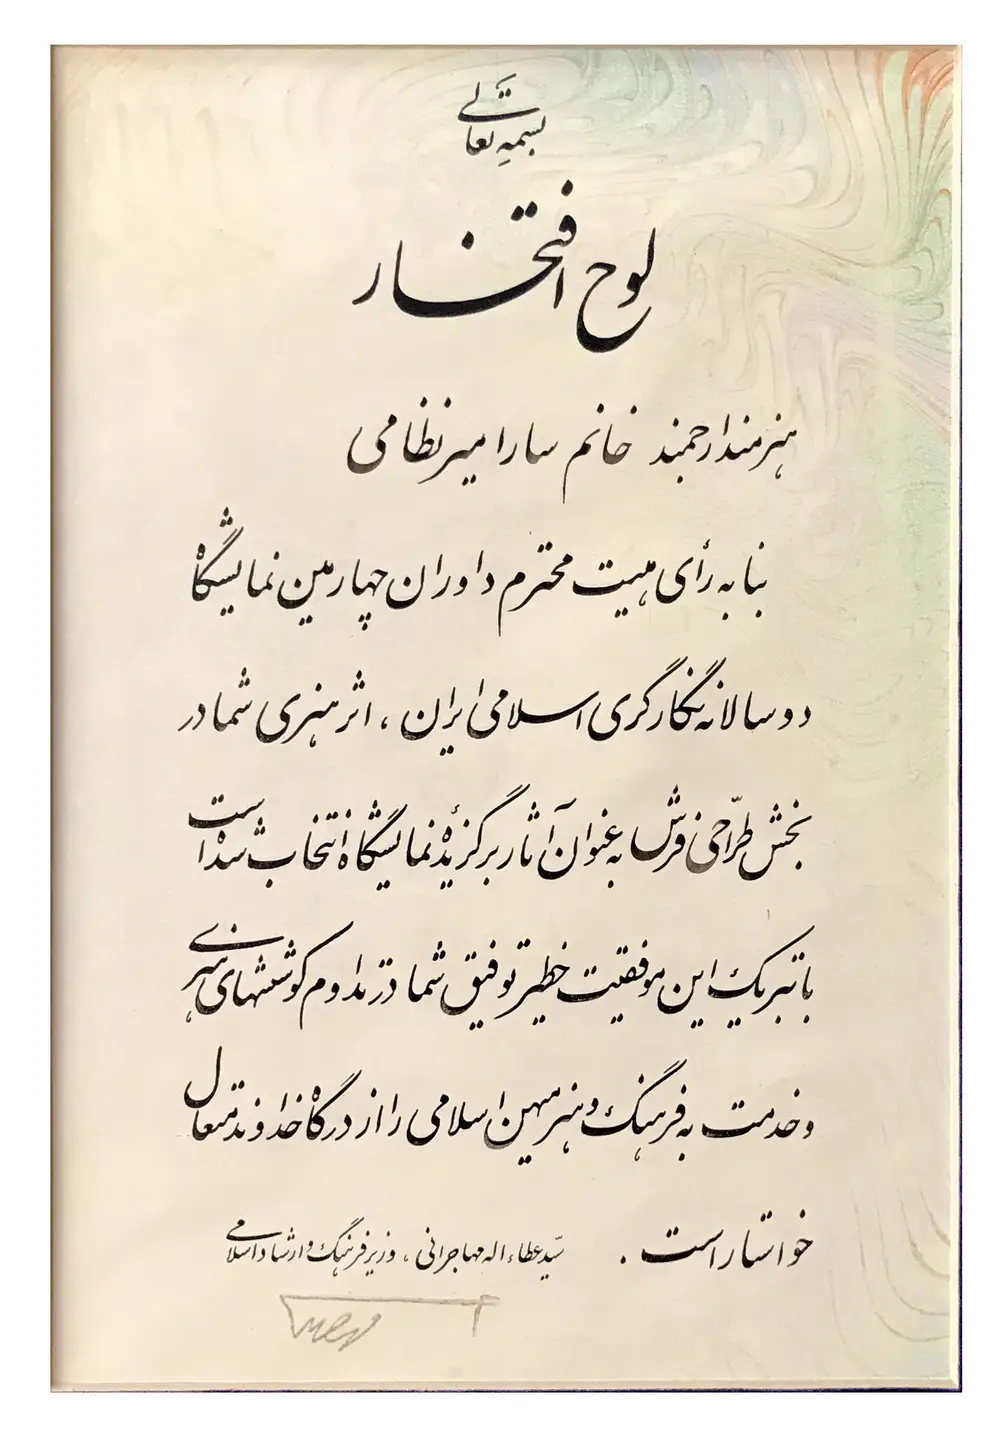 بسمه تعالی
لوح افتخار
هنرمند ارجمند خانم سارا میرنظامی
بنا به رأی هییت محترم داوران چهارمین نمایشگاه
دوسالانه نگارگری اسلامی ایران ، اثر هنری شما در
بخش طراحی فرش به عنوان آثار برگزیدهٔ نمایشگاه انتخاب شده است
با تبریک این موفقیت خطیر توفیق شما در تداوم کوششهای هنری
و خدمت به فرهنگ و هنر میهن اسلامی را از درگاه خداوند متعال
خواستار است .
سیّد عطاءاله مهاجرانی ، وزیر فرهنگ و ارشاد اسلامی